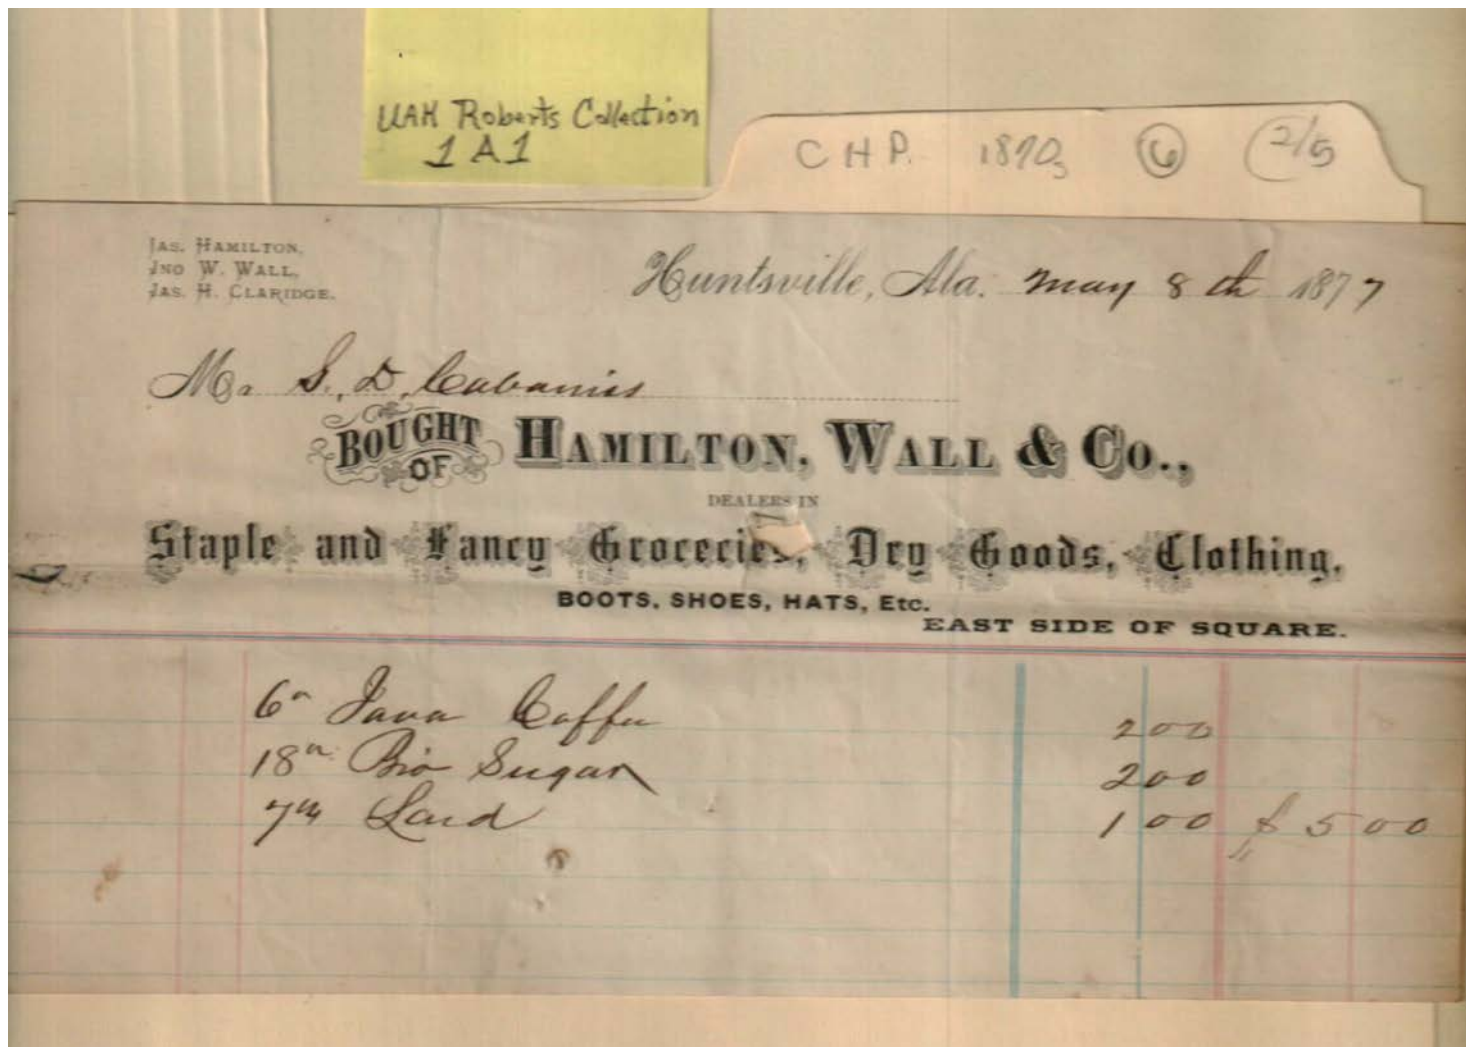 UAH Roberts Collection
1A1
CHP. 1870s 6 2/5
JAS. HAMILTON,
JNO W. WALL,
JAS. H. CLARIDGE.
Huntsville, Ala. May 8th 1877
Mr S. D. Cabaniss
BOUGHT OF HAMILTON, WALL & CO.,
DEALERS IN
Staple and Fancy Groceries, Dry Goods, Clothing,
BOOTS, SHOES, HATS, Etc.
EAST SIDE OF SQUARE.
6 Java Coffee 200
18 Sugar 200
7 Lard 100 $500